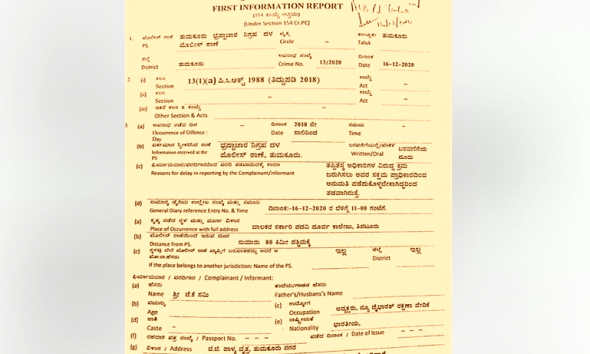 FIRST INFORMATION REPORT
(Under Section 154 Cr.PC)
1. ಪೊಲೀಸ್ ಠಾಣೆ ತುಮಕೂರು ಭ್ರಷ್ಟಾಚಾರ ನಿಗ್ರಹ ದಳ ವೃತ್ತ ತಾಲ್ಲೂಕು ತುಮಕೂರು
PS. ಪೊಲೀಸ್ ಠಾಣೆ Circle – Taluk
ಜಿಲ್ಲೆ ತುಮಕೂರು ಅಪರಾಧ ಸಂಖ್ಯೆ 13/2020 ದಿನಾಂಕ 16-12-2020
District Crime No. Date
2. (i) ಕಲಂ 13(1)(ಡಿ) ಪಿ.ಸಿ.ಆಕ್ಟ್ 1988 (ತಿದ್ದುಪಡಿ 2018) ಕಾಯ್ದೆ
Section Act –
(ii) ಕಲಂ ಕಾಯ್ದೆ
Section – Act –
(iii) ಇತರೆ ಕಲಂ & ಕಾಯ್ದೆ
Other Section & Acts
3. (a) ಅಪರಾಧ ನಡೆದ ದಿನ – ದಿನಾಂಕ 2018 ನೇ ಸಮಯ –
Occurrence of Offence : Date ಸಾಲಿನಿಂದ Time
Day
(b) ಭ್ರಷ್ಟಾಚಾರ ನಿಗ್ರಹ ದಳ ಬರವಣಿಗೆಯ
Information received at the PS ಪೊಲೀಸ್ ಠಾಣೆ, ತುಮಕೂರು. Written/Oral ದೂರು
(c) ತಪ್ಪಿತಸ್ಥ ಅಧಿಕಾರಿಗಳ ವಿರುದ್ಧ ಕ್ರಮ
Reasons for delay in reporting by the Complainant/informant ಜರುಗಿಸಲು ಅವರ ಸಕ್ಷಮ ಪ್ರಾಧಿಕಾರದಿಂದ
ಅನುಮತಿ ಪಡೆದುಕೊಳ್ಳಬೇಕಾಗಿದ್ದರಿಂದ
ತಡವಾಗಿರುತ್ತೆ.
(d) ದಿನಾಂಕ:-16-12-2020 ರ ಬೆಳಗ್ಗೆ 11-00 ಗಂಟೆಗೆ.
General Diary reference Entry No. & Time
(a) ಕೃತ್ಯ ನಡೆದ ಸ್ಥಳ ಮತ್ತು ಪೂರ್ಣ ವಿಳಾಸ
Place of Occurrence with full address ಬಾಲಕರ ಸರ್ಕಾರಿ ಪದವಿ ಪೂರ್ವ ಕಾಲೇಜು, ತಿಪಟೂರು
(b) ಪೊಲೀಸ್ ಠಾಣೆಯಿಂದ ಇರುವ ದೂರ
Distance from PS. ಸುಮಾರು 80 ಕಿಮೀ ಪಶ್ಚಿಮಕ್ಕೆ
(c) ಇಲ್ಲ ಜಿಲ್ಲೆ ಇಲ್ಲ
If the place belongs to another jurisdiction: Name of the PS. District
ಫಿರ್ಯಾದುದಾರ / Complainant / Informant:
(a) ಹೆಸರು
Name ಶ್ರೀ ಜೆ.ಕೆ ಸಮಿ Father's/Husbans's Name
(b) ವಯಸ್ಸು (c) ಉದ್ಯೋಗ ಅಧ್ಯಕ್ಷರು, ನ್ಯೂ ಜೈಭಾರತ್ ರಕ್ಷಣಾ ವೇದಿಕೆ
Age Occupation
(d) ಜಾತಿ (e) ರಾಷ್ಟ್ರೀಯತೆ ಭಾರತೀಯ,
Caste – Nationality
(f) / Passport No. – – – / Date of Issue – – –
(g) ವಿಳಾಸ / Address ಜಿ.ಜಿ. ಪಾಳ್ಯ ವೃತ್ತ, ತುಮಕೂರು ನಗರ